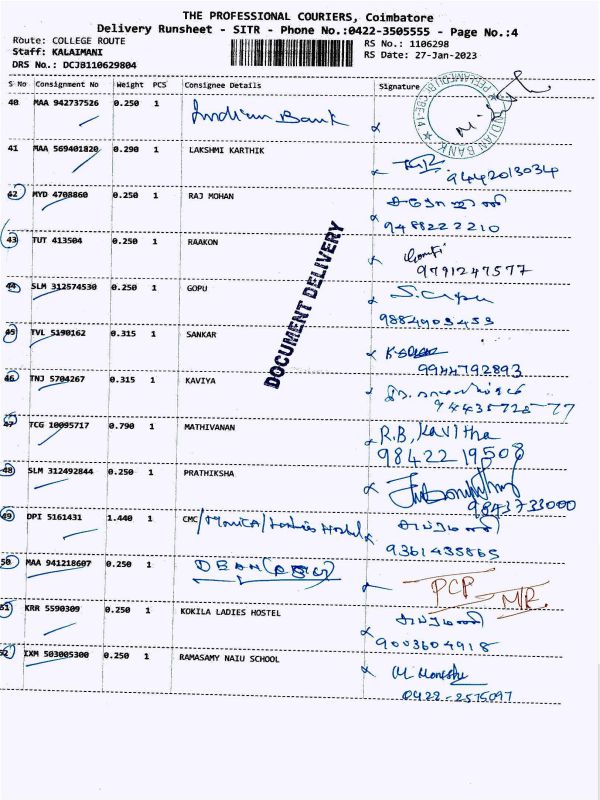 THE PROFESSIONAL COURIERS, Coimbatore
Delivery Runsheet - SITR - Phone No.:0422-3505555 - Page No.:4
Route: COLLEGE ROUTE RS No.: 1106298
Staff: KALAIMANI RS Date: 27-Jan-2023
DRS No.: DCJB110629804
S No Consignment No Weight PCS Consignee Details Signature
40 MAA 942737526 0.250 1 Indian Bank
INDIAN BANK
41 MAA 569401820 0.290 1 LAKSHMI KARTHIK
9442013034
42 MYD 4708860 0.250 1 RAJ MOHAN
9488222210
43 TUT 413504 0.250 1 RAAKON
9791247577
DOCUMENT DELIVERY
44 SLM 312574530 0.250 1 GOPU S. Gopu
9884903453
45 TVL 5190162 0.315 1 SANKAR
9944792893
46 TNJ 5704267 0.315 1 KAVIYA
94435728-77
47 TCG 10095717 0.790 1 MATHIVANAN R.B. Kavitha
9842219508
48 SLM 312492844 0.250 1 PRATHIKSHA
9843733000
49 DPI 5161431 1.440 1 CMC/Monica/Ladies Hostel
9361435865
50 MAA 941218607 0.250 1 DEAN
PCP MR.
51 KRR 5590309 0.250 1 KOKILA LADIES HOSTEL
9003604918
52 IXM 503005300 0.250 1 RAMASAMY NAIU SCHOOL
0422-2575097